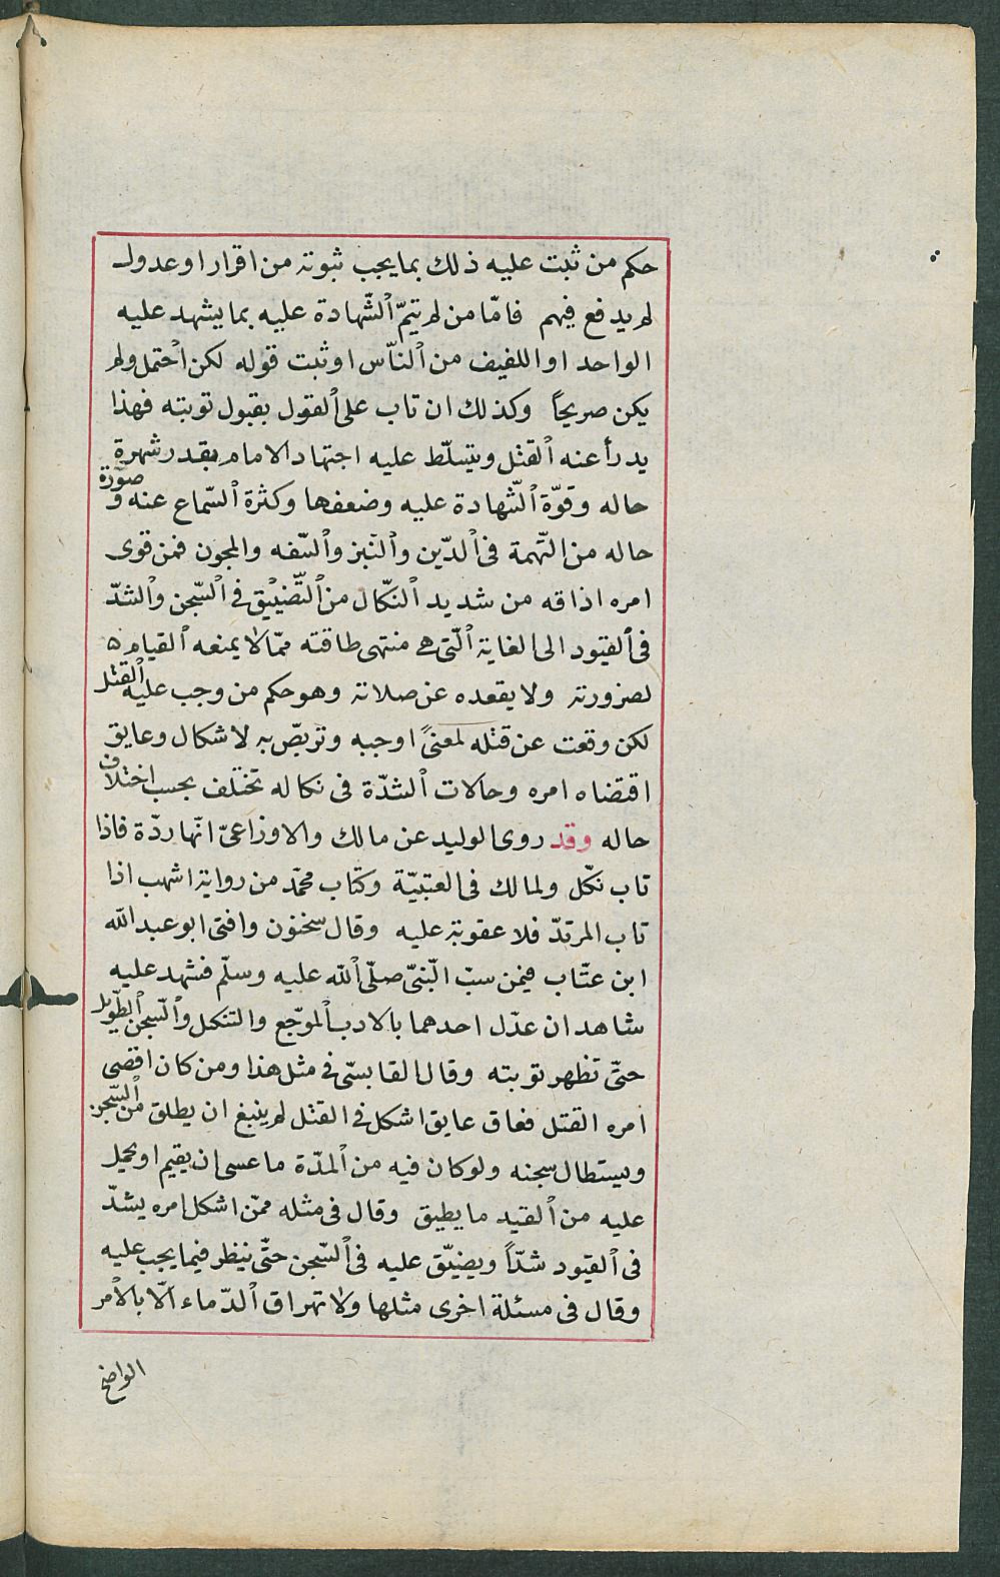 حكم من ثبت عليه ذلك بما يجب ثبوته من اقرار او عدول
لم يدفع فيهم فامّا من لم يتمّ الشّهادة عليه بما يشهد عليه
الواحد او اللفيف من النّاس او ثبت قوله لكن احتمل ولم
يكن صريحاً وكذلك ان تاب على القول بقبول توبته فهذا
يدرأ عنه القتل ويتسلّط عليه اجتهاد الامام بقدر شهرة
حاله وقوّة الشّهادة عليه وضعفها وكثرة السّماع عنه و صورة
حاله من التّهمة فى الدّين والنّبز والسّفه والمجون فمن قوى
امره اذاقه من شديد النّكال من التّضييق فى السّجن والشدّ
فى القيود الى الغاية الّتى هى منتهى طاقته ممّا لا يمنعه القيام
لضرورته ولا يقعده عن صلاته وهو حكم من وجب عليه القتل
لكن وقعت عن قتله لمعنىً اوجبه وتربّص به لاشكال وعايق
اقتضاه امره وحالات الشدّة فى نكاله تختلف بحسب اختلاف
حاله وقد روى الوليد عن مالك والاوزاعىّ انّها ردّة فاذا
تاب نكّل ولمالك فى العتبيّة وكتاب محمّد من رواية اشهب اذا
تاب المرتدّ فلا عقوبة عليه وقال سحنون وافتى ابو عبد الله
ابن عتّاب فيمن سبّ النّبىّ صلّى الله عليه وسلّم فشهد عليه
شاهدان عدّل احدهما بالادب الموجّع والتنكل والسّجن الطّويل
حتّى تظهر توبته وقال القابسىّ فى مثل هذا ومن كان اقصى
امره القتل فعاق عايق اشكل فى القتل لم ينبغ ان يطلق من السّجن
ويستطال سجنه ولو كان فيه من المدّة ما عسى ان يقيم او يحمل
عليه من القيد ما يطيق وقال فى مثله ممّن اشكل امره يشدّ
فى القيود شدّاً ويضيّق عليه فى السّجن حتّى ينظر فيما يجب عليه
وقال فى مسئلة اخرى مثلها ولا تهراق الدّماء الّا بالأمر
الواضح